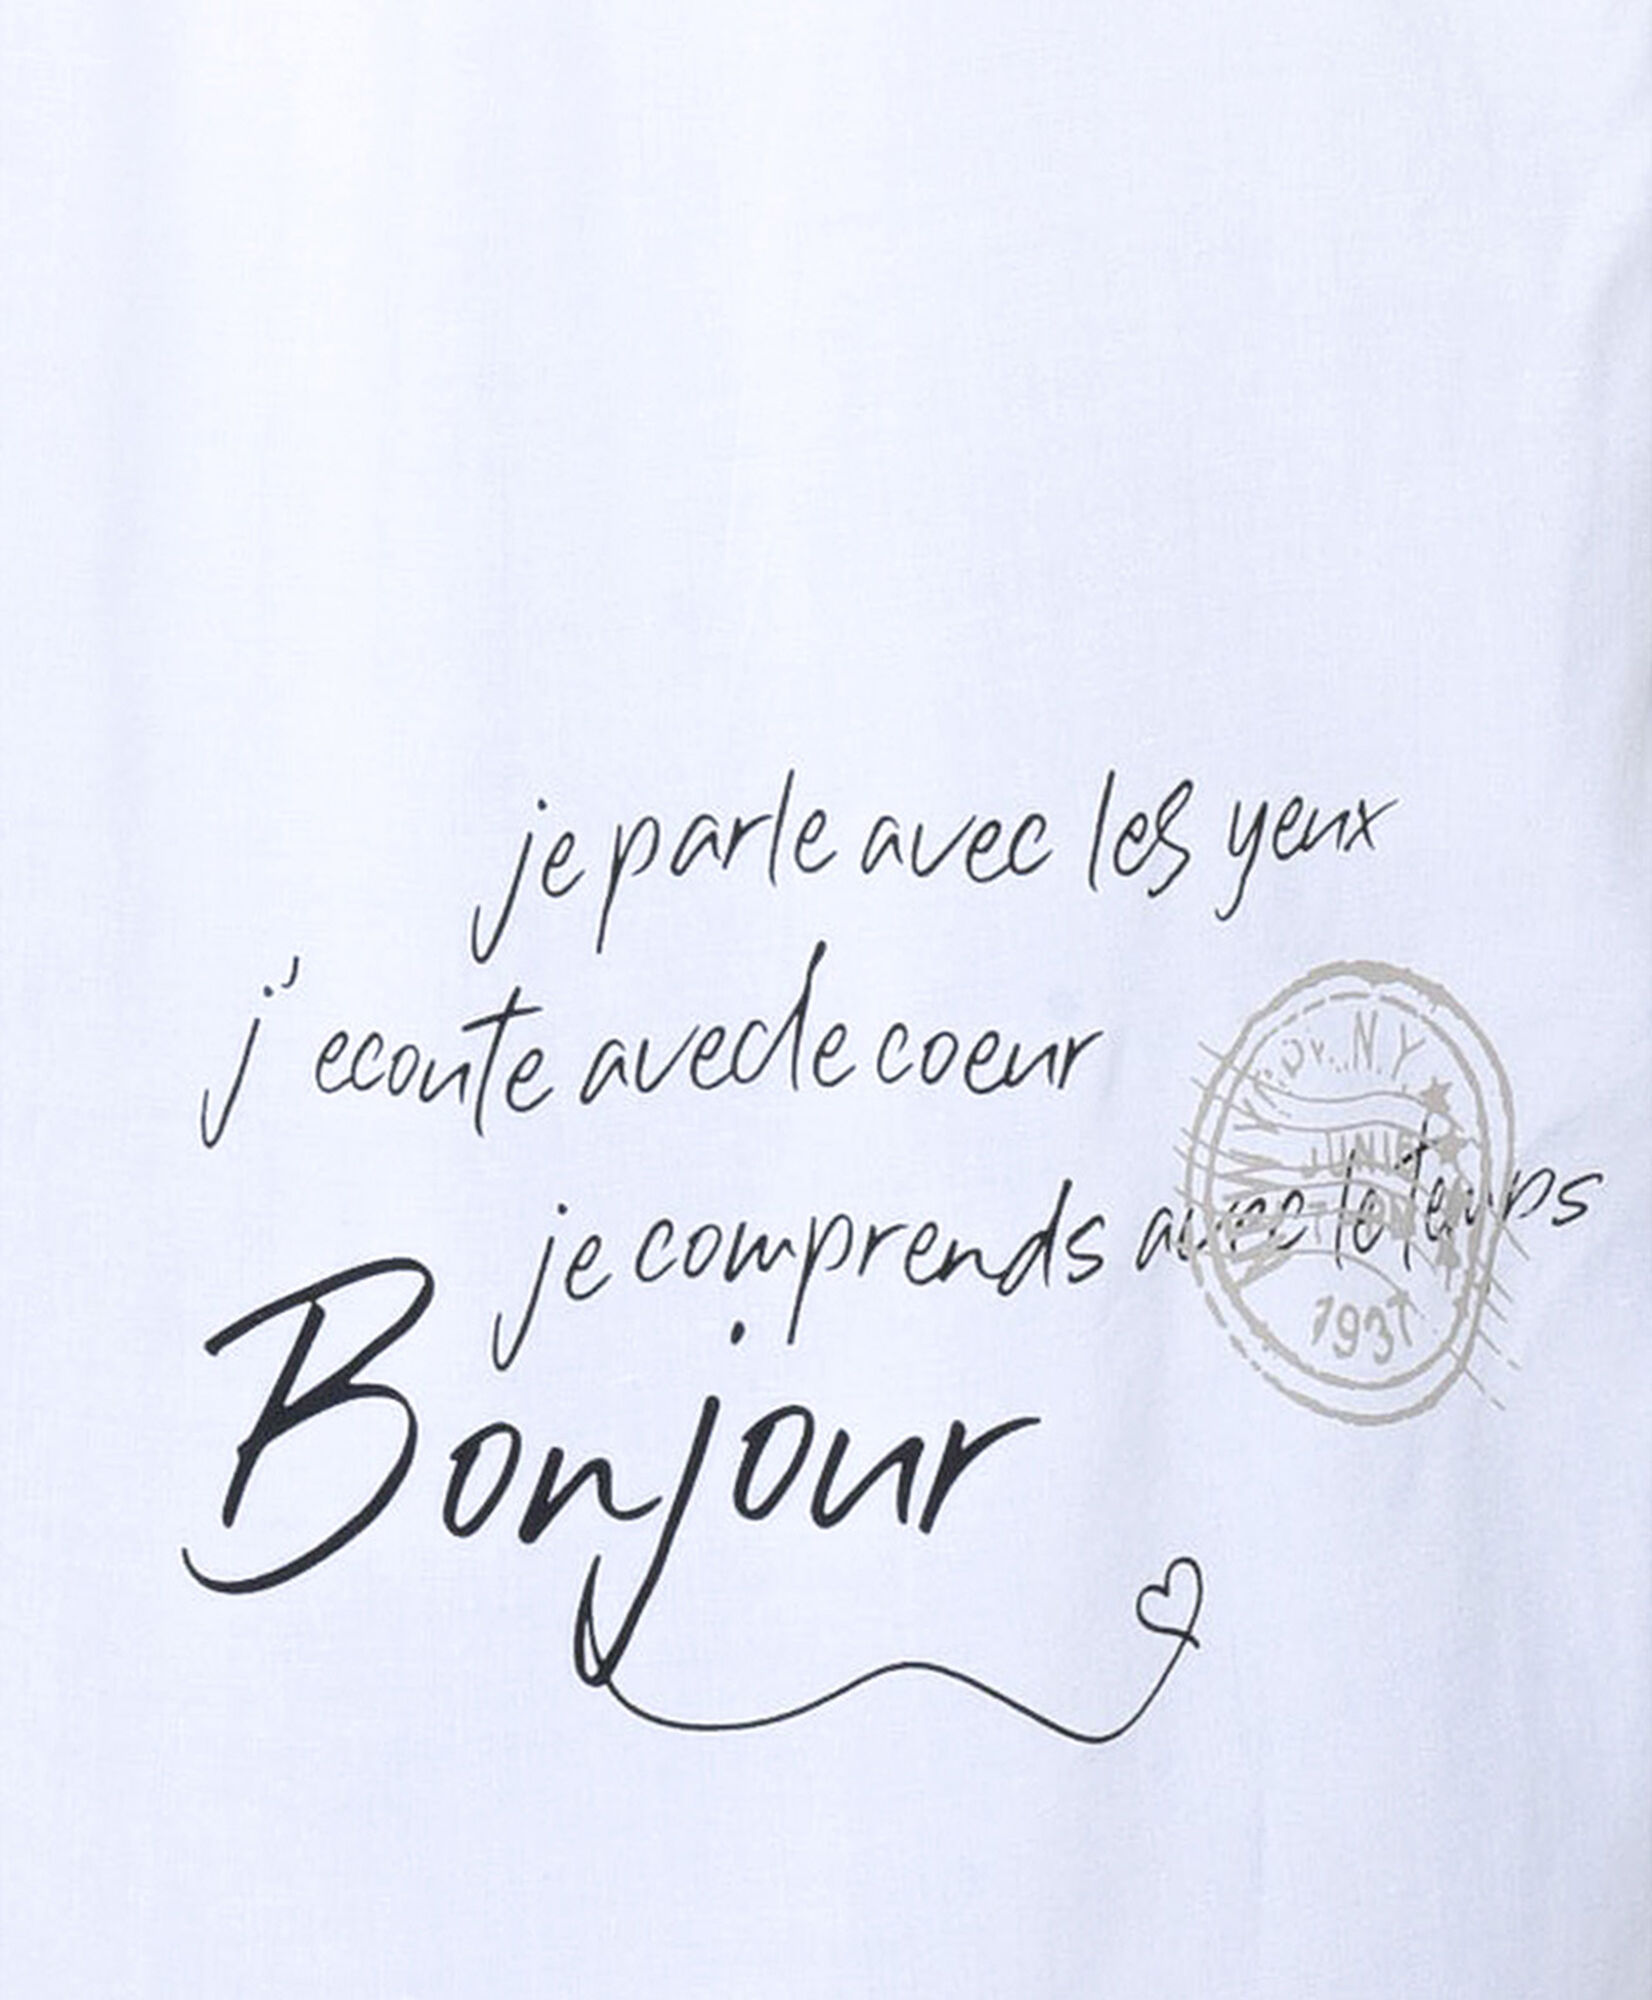 je parle avec les yeux
j' ecoute avec le coeur
je comprends avec le temps
Bonjour
N.Y
JUNIE
1937